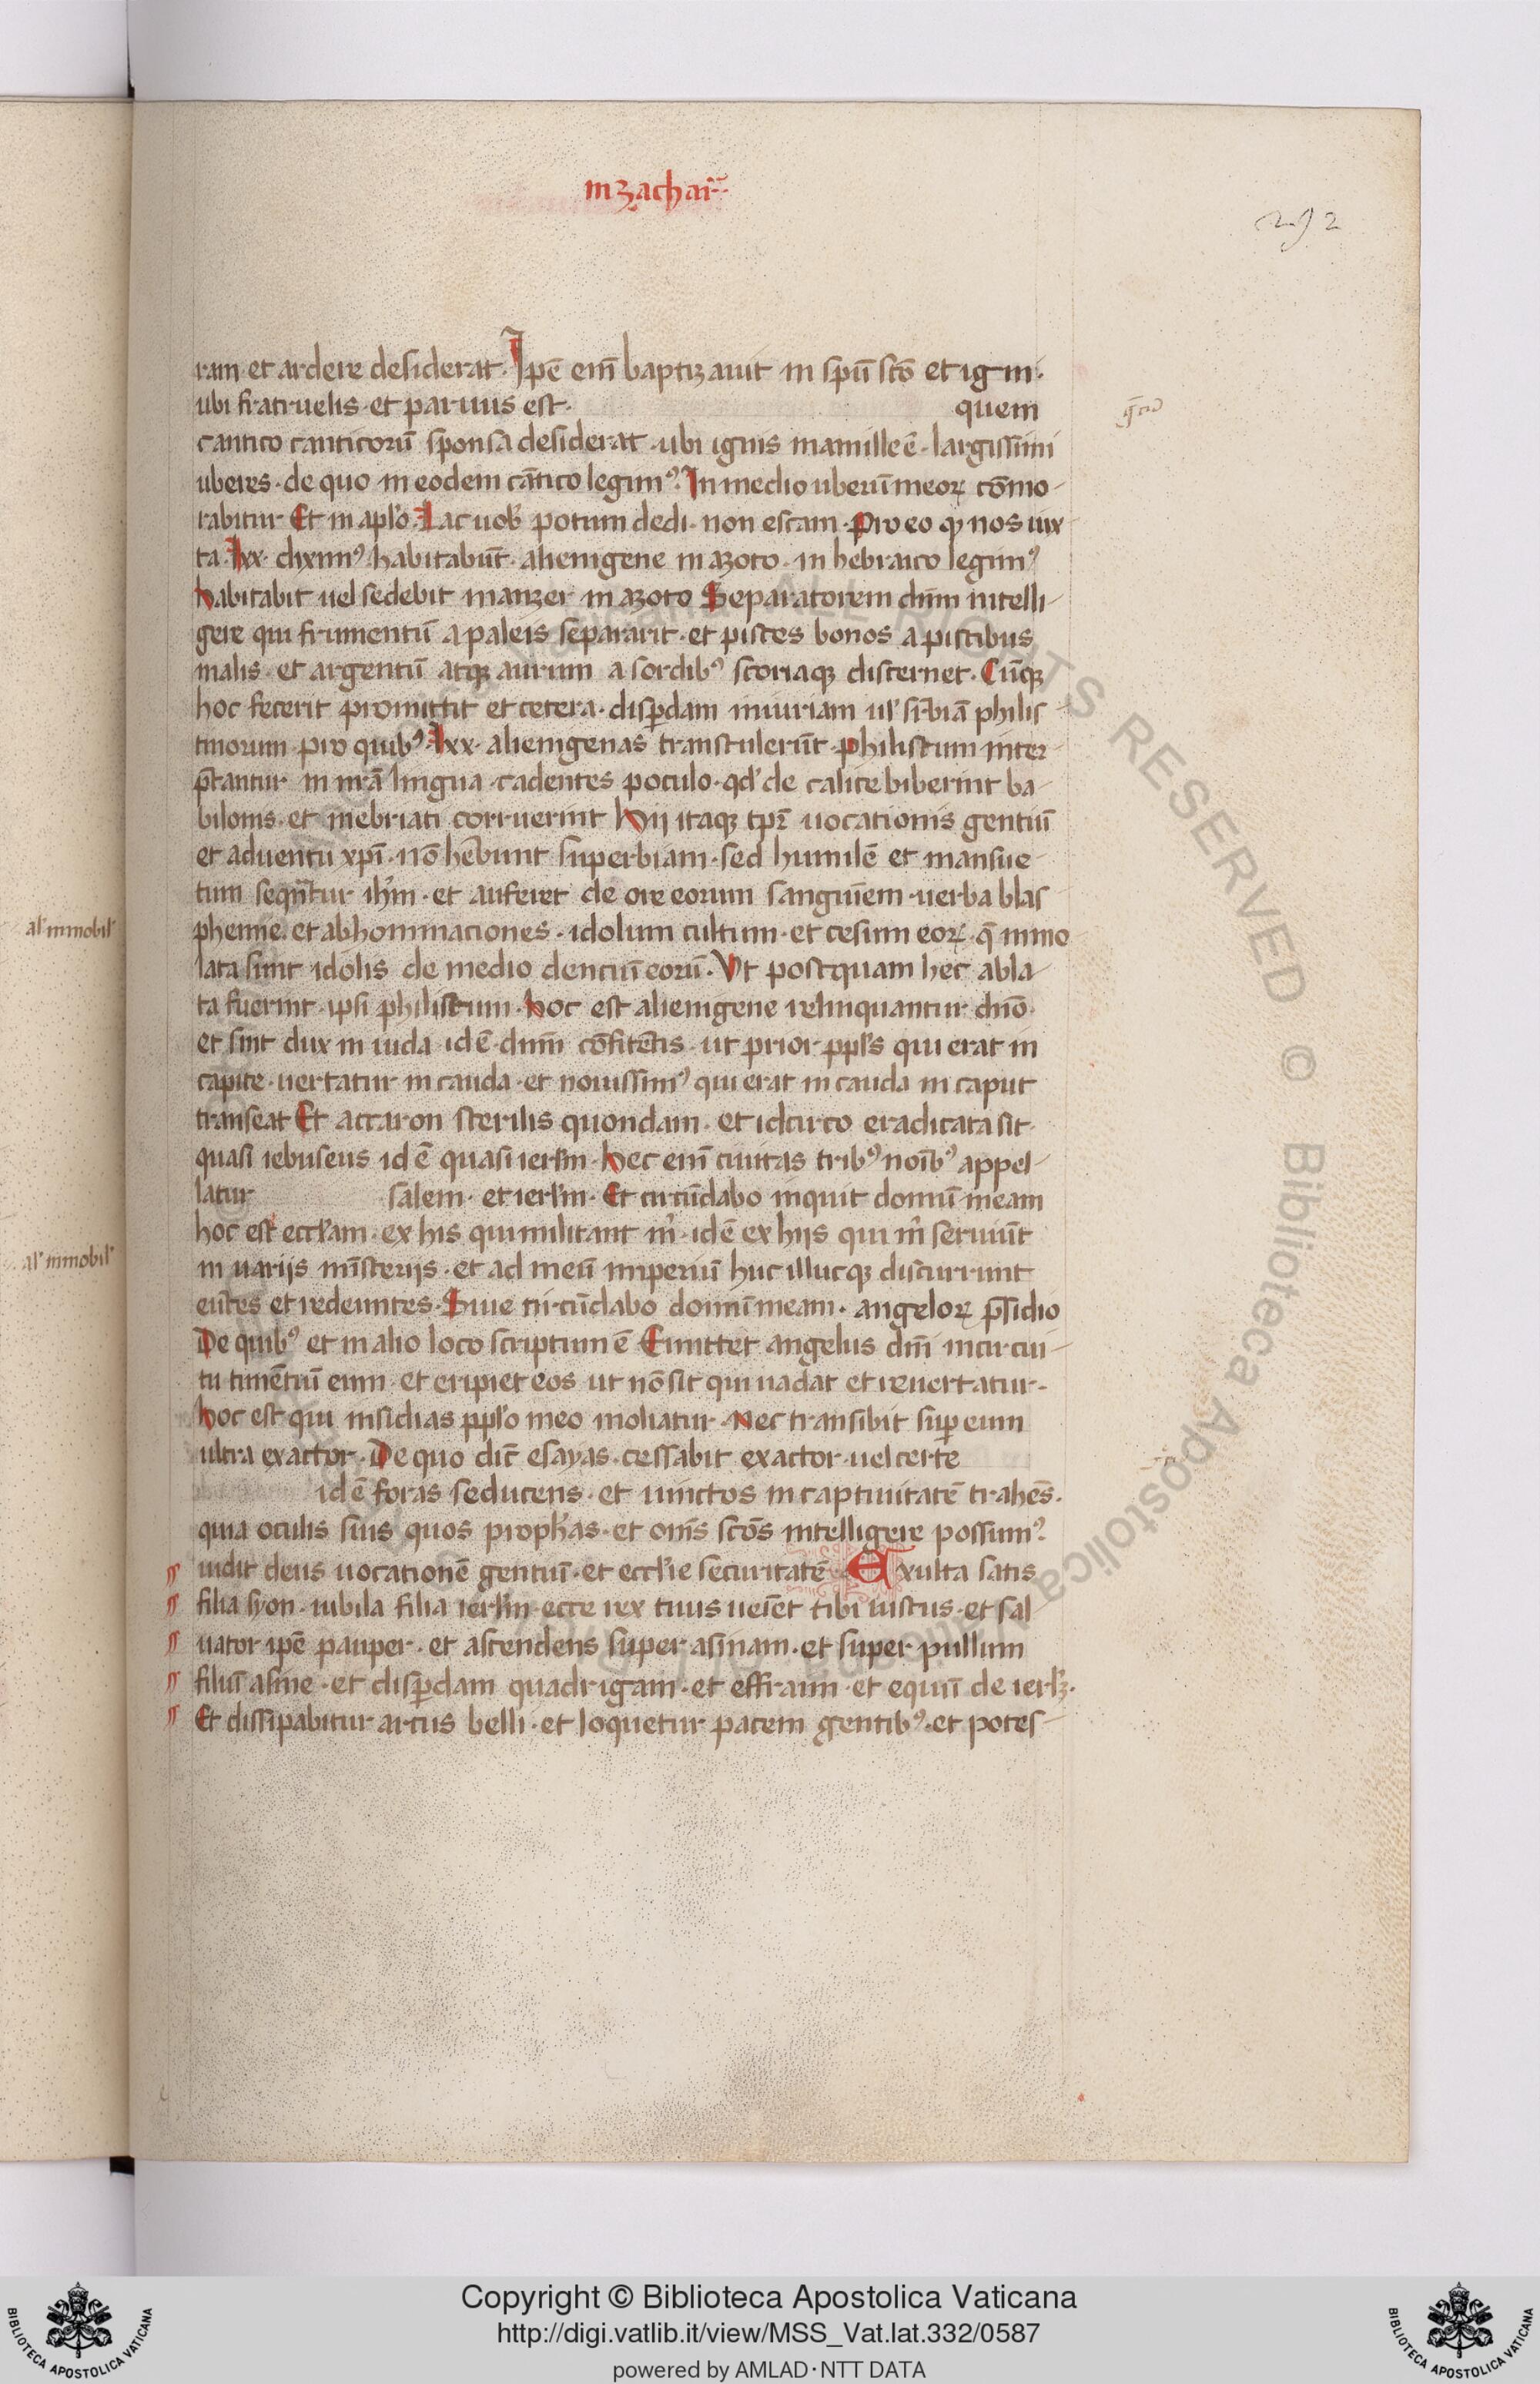 in zachar̄
292
ram et ardere desiderat. Ip̄e em̄ baptizauit in sp̄u sc̄o et igni.
ubi fratruelis et paruus est. quem
gr̄cū
cantico canticorū sponsa desiderat. ubi ignis mamille ē. largissimi
uberes. de quo in eodem cātico legim᷒. In medio uberū meoꝝ cōmo-
rabitur Et in apl'o. Lac uob' potum dedi. non escam. Pro eo ꝙ nos iux-
ta lxx. dixim᷒. habitabūt alienigene in azoto. in hebraico legim᷒
habitabit uel sedebit manzer in azoto Separatorem dn̄m intelli-
gere qui frumentū a paleis separarit. et pisces bonos a piscibus
malis. et argentū atqꝫ aurum a sordib᷒ scoriaqꝫ discernet. Cūqꝫ
hoc fecerit promittit et cetera. disꝑdam iniuriam ul' sꝑbiā philis-
tinorum. pro quib᷒ lxx. alienigenas transtulerūt. philistiim inter-
p̄tantur in nr̄ā lingua cadentes poculo. qd' de calice biberint ba-
bilonis. et inebriati corruerint Hij itaqꝫ tp̄r uocationis gentiū
et aduentu xp̄i. nō hēbunt superbiam. sed humilē et mansue-
tum seqn̄tur ih'm. et auferet de ore eorum sanguīem. uerba blas-
phemie. et abhominaciones. idolum cultum. et cesim eoꝝ. q̄ immo-
al' immobil'
lata sunt idolis de medio dentiū eorū. Vt postquam hec abla-
ta fuerint. ipsi philistiim. hoc est alienigene relinquantur dn̄o.
et sint dux in iuda id ē dn̄m cōfitētis. ut prior ppl's qui erat in
capite. uertatur in cauda. et nouissim᷒ qui erat in cauda in caput
transeat Et accaron sterilis quondam. et idcirco eradicata sit.
quasi iebuseus id ē quasi ierl'm. hec em̄ ciuitas trib᷒ noīb᷒ appel-
latur salem. et ierl'm. Et circūdabo inquit domū meam
hoc est eccl'am. ex his qui militant m'. id ē ex hijs qui m' seruiūt
al' immobil'
in uarijs mīsterijs. et ad meū imperiū huc illucqꝫ discurrunt
eūtes et redeuntes. Siue circūdabo domū meam. angeloꝝ p̄sidio
De quib᷒ et in alio loco scriptum ē Eimittet angelus dn̄i in circui-
tu timētiū eum. et eripiet eos ut nō sit qui uadat et reuertatur.
hoc est qui insidias ppl'o meo moliatur. Nec transibit suꝑ eum
ultra exactor. De quo dic̄ esayas. cessabit exactor. uel certe
id ē foras seducens. et uinctos in captiuitatē trahēs.
quia oculis suis quos proph'as. et om̄s sc̄os intelligere possum᷒.
uidit deus uocationē gentiū. et eccl'ie securitatē. Exulta satis
filia syon. iubila filia ierl'm ecce rex tuus ueiet tibi iustus. et sal-
uator ip̄e pauper. et ascendens super asinam. et super pullum
filiū asine. et disꝑdam quadrigam. et effraim. et equū de ierl'ꝫ.
Et dissipabitur arcus belli. et loquetur pacem gentib᷒. et potes-
ALL RIGHTS RESERVED © Biblioteca Apostolica Vaticana
Copyright © Biblioteca Apostolica Vaticana
http://digi.vatlib.it/view/MSS_Vat.lat.332/0587
powered by AMLAD·NTT DATA
BIBLIOTECA APOSTOLICA VATICANA
BIBLIOTECA APOSTOLICA VATICANA